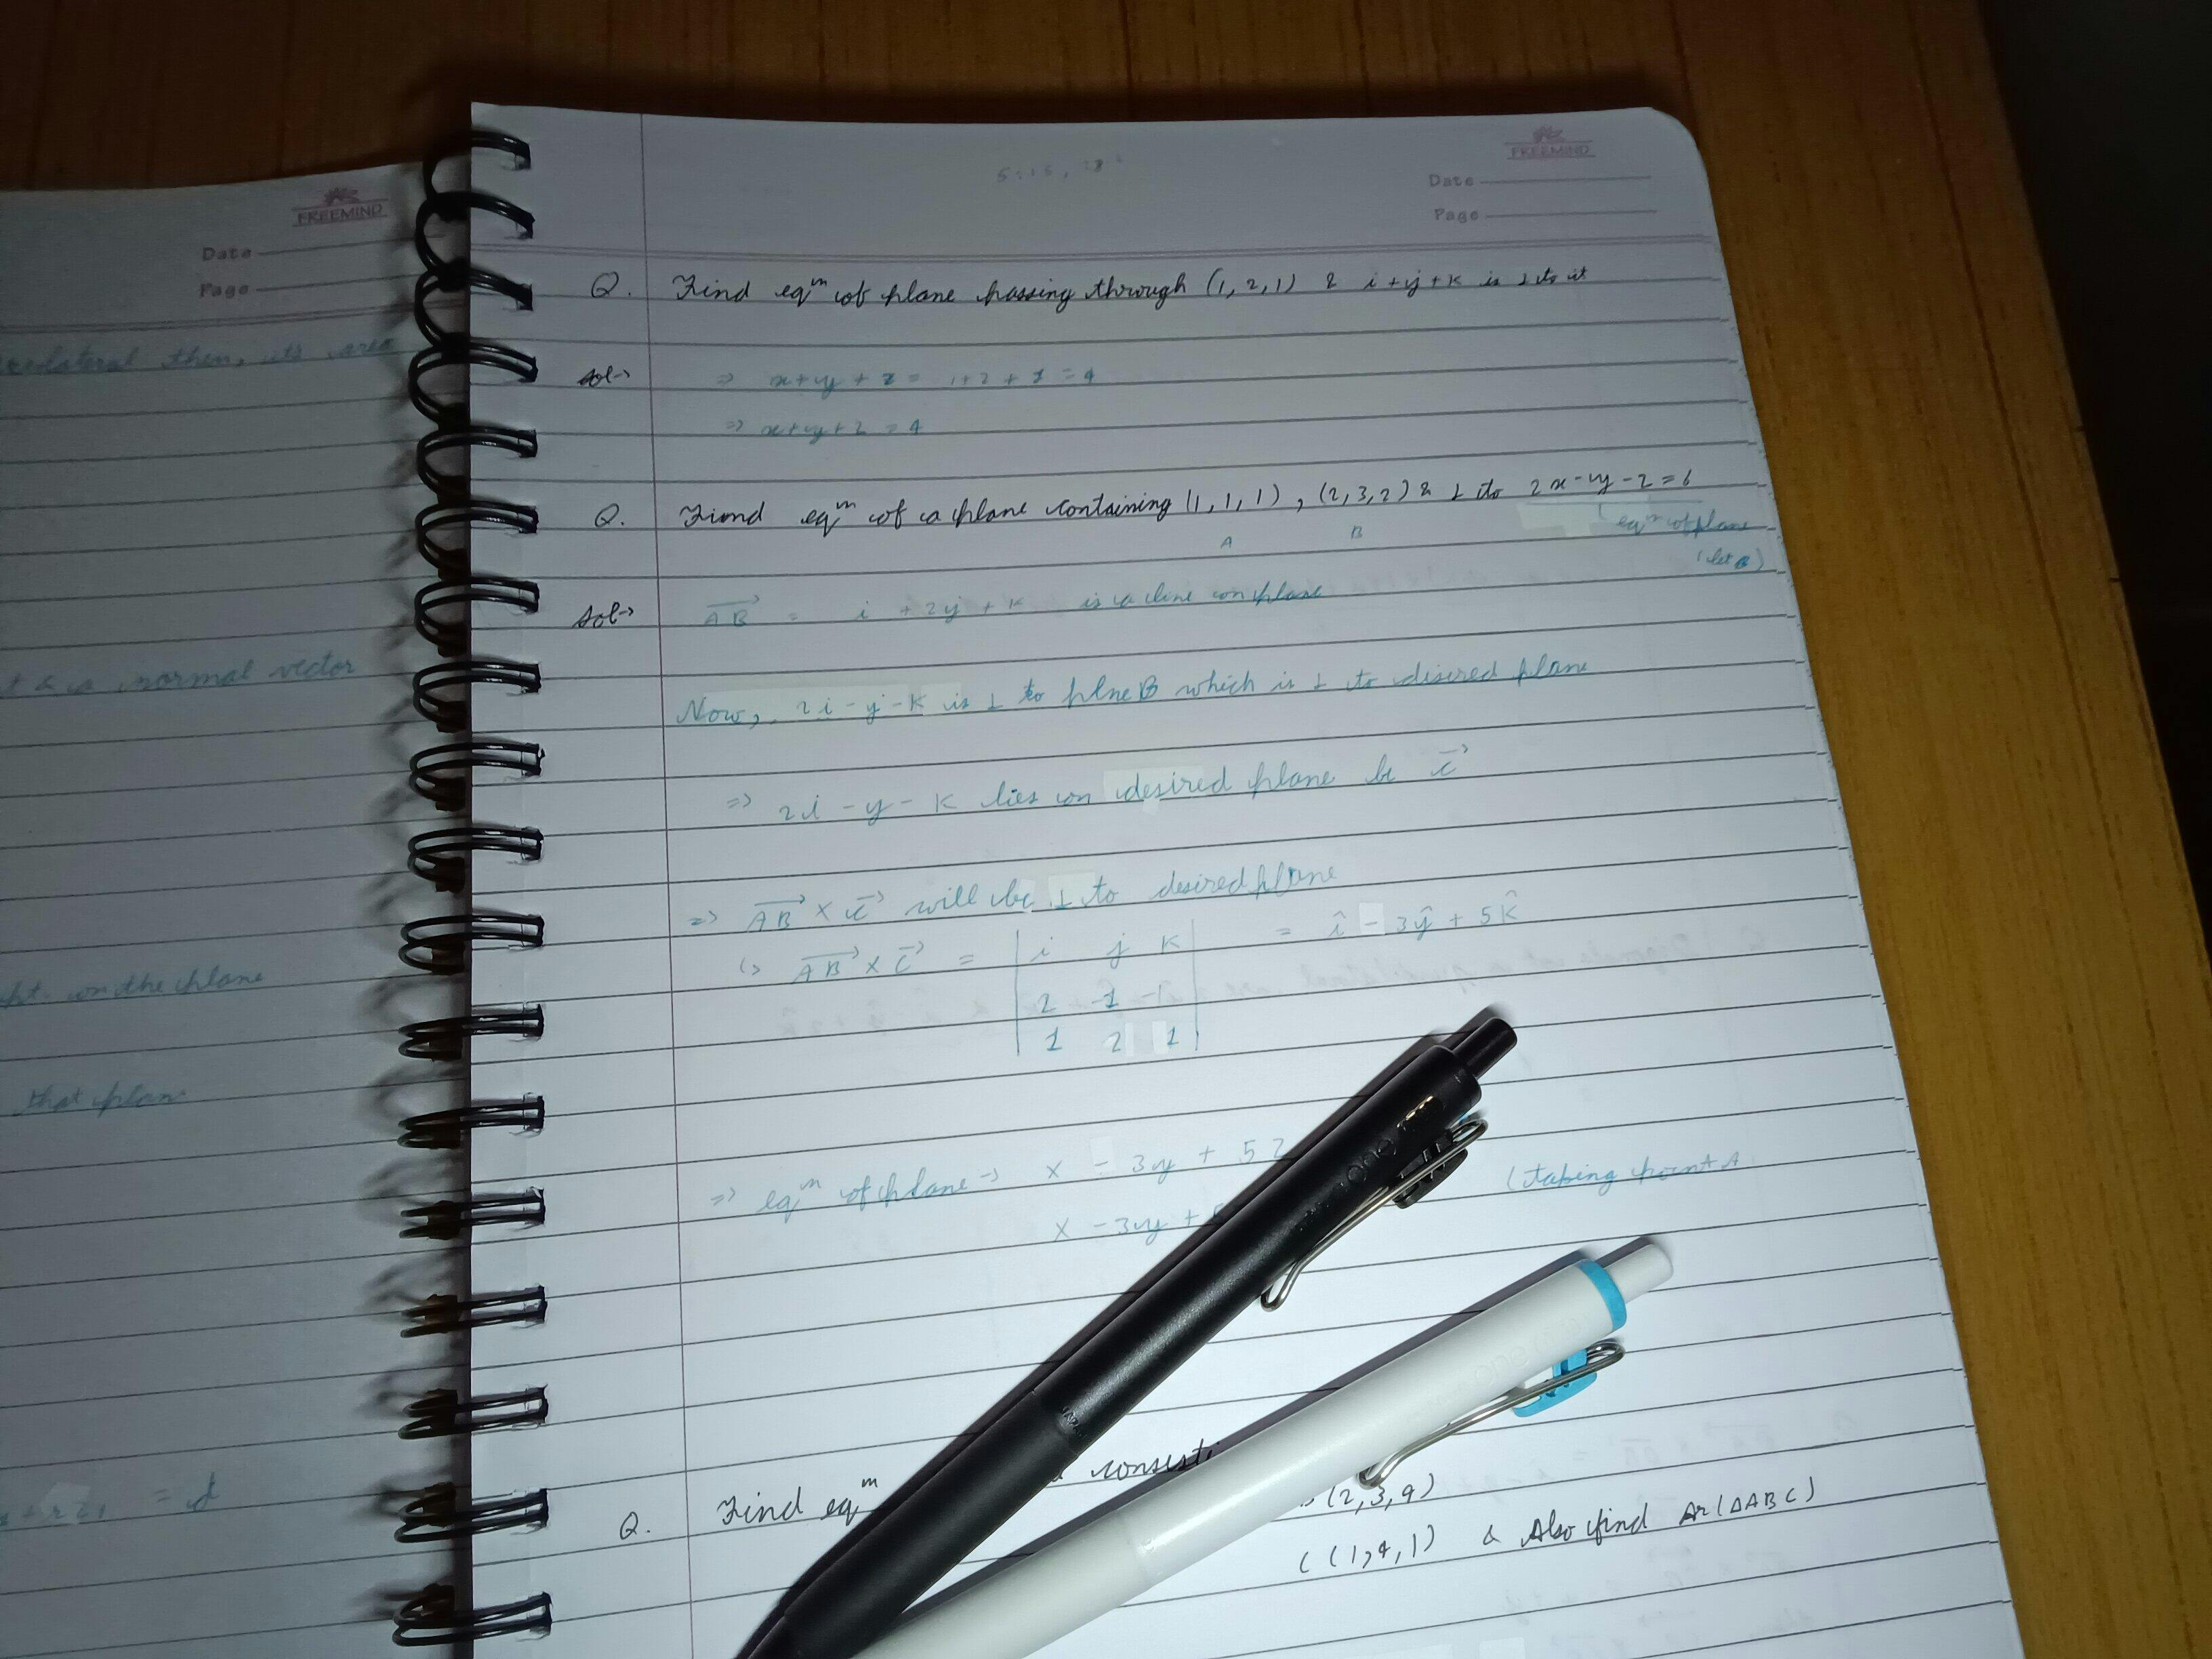 FREEMIND
Date
Page
then, its area
is normal vector
pt. on the plane
that plan
= d
FREEMIND
Date
Page
Q. Find eqⁿ of plane passing through (1, 2, 1) & i+j+k is ⊥ to it
Sol→ ⇒ x+y+z = 1+2+1=4
⇒ x+y+z = 4
Q. Find eqⁿ of a plane containing (1,1,1), (2,3,2) & ⊥ to 2x-y-z=6
A B eqⁿ of plane
(let B)
Sol→ AB = i + 2j + k is a line on plane
Now, 2i - j - k is ⊥ to plne B which is ⊥ to desired plane
⇒ 2i - j - k lies on desired plane be c
⇒ AB × c will be ⊥ to desired plane
↳ AB × c = | i j k | = î - 3ĵ + 5k̂
2 -1 -1
1 2 1
⇒ eqⁿ of plane → x - 3y + 5z
x - 3y + (taking point A
Q. Find eqⁿ (2,3,4)
C(1,4,1) & Also find Ar(ΔABC)